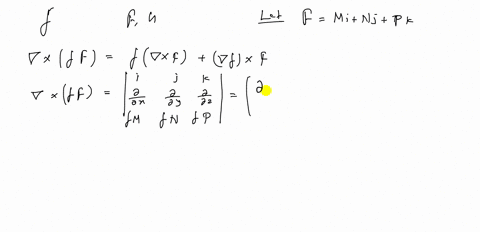 f F, G Let F = Mi + Nj + Pk
∇ × (f F) = f (∇ × F) + (∇f) × F
∇ × (f F) = | i j k ; ∂/∂x ∂/∂y ∂/∂z ; fM fN fP | = ( ∂